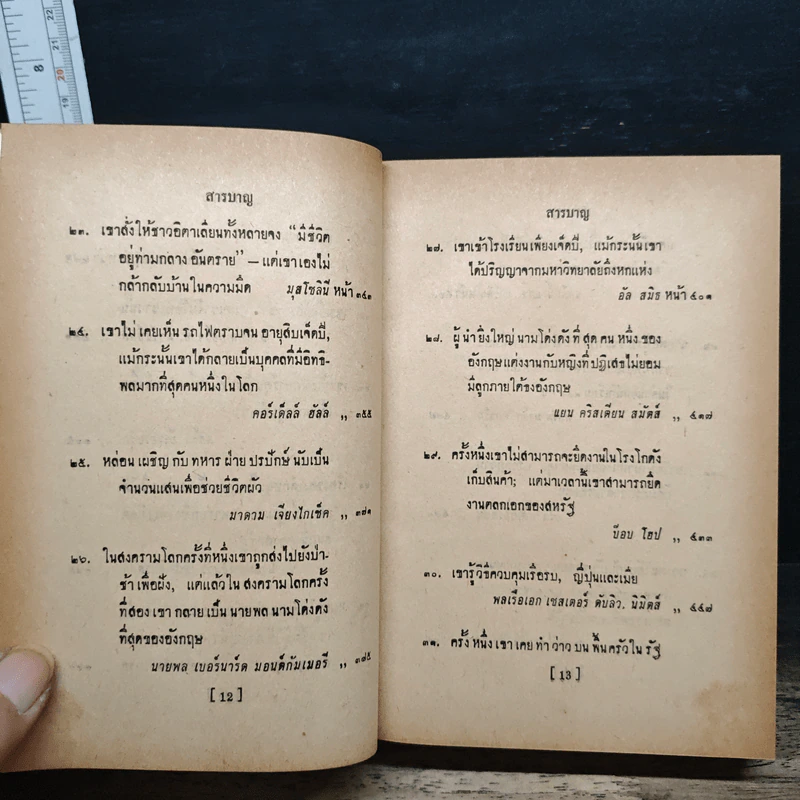 8
20
19
สารบาญ
๒๓. เขาสั่งให้ชาวอิตาเลียนทั้งหลายจง “มีชีวิต
อยู่ท่ามกลาง อันตราย” — แต่เขาเองไม่
กล้ากลับบ้านในความมืด มุสโซลินี หน้า ๓๔๓
๒๔. เขาไม่ เคยเห็น รถไฟตราบจน อายุสิบเจ็ดปี,
แม้กระนั้นเขาได้กลายเป็นบุคคลที่มีอิทธิ-
พลมากที่สุดคนหนึ่งในโลก
คอร์เด็ลล์ ฮัลล์ ,, ๓๕๕
๒๕. หล่อน เผชิญ กับ ทหาร ฝ่าย ปรปักษ์ นับเป็น
จำนวนแสนเพื่อช่วยชีวิตผัว
มาดาม เจียงไกเช็ค ,, ๓๗๑
๒๖. ในสงครามโลกครั้งที่หนึ่งเขาถูกส่งไปยังป่า-
ช้า เพื่อฝัง, แต่แล้ว ใน สงครามโลกครั้ง
ที่สอง เขา กลาย เป็น นายพล นามโด่งดัง
ที่สุดของอังกฤษ
นายพล เบอร์นาร์ด มอนต์กัมเมอรี ,, ๓๘๕
[ 12 ]
สารบาญ
๒๗. เขาเข้าโรงเรียนเพียงเจ็ดปี, แม้กระนั้น เขา
ได้ปริญญาจากมหาวิทยาลัยถึงหกแห่ง
อัล สมิธ หน้า ๔๐๑
๒๘. ผู้ นำ ยิ่งใหญ่ นามโด่งดัง ที่ สุด คน หนึ่ง ของ
อังกฤษ แต่งงานกับหญิงที่ ปฏิเสธไม่ยอม
มีลูกภายใต้ธงอังกฤษ
แยน คริสเตียน สมัตส์ ,, ๔๑๗
๒๙. ครั้งหนึ่งเขาไม่สามารถจะยึดงานในโรงโกดัง
เก็บสินค้า; แต่มาเวลานี้เขาสามารถยึด
งานตลกเอกของสหรัฐ
บ๊อบ โฮป ,, ๔๓๓
๓๐. เขารู้วิธีควบคุมเรือรบ, ญี่ปุ่นและเมีย
พลเรือเอก เชสเตอร์ ดับลิว. นิมิตส์ ,, ๔๔๗
๓๑. ครั้ง หนึ่ง เขา เคย ทำ ว่าว บน พื้น ครัว ใน รัฐ
[ 13 ]